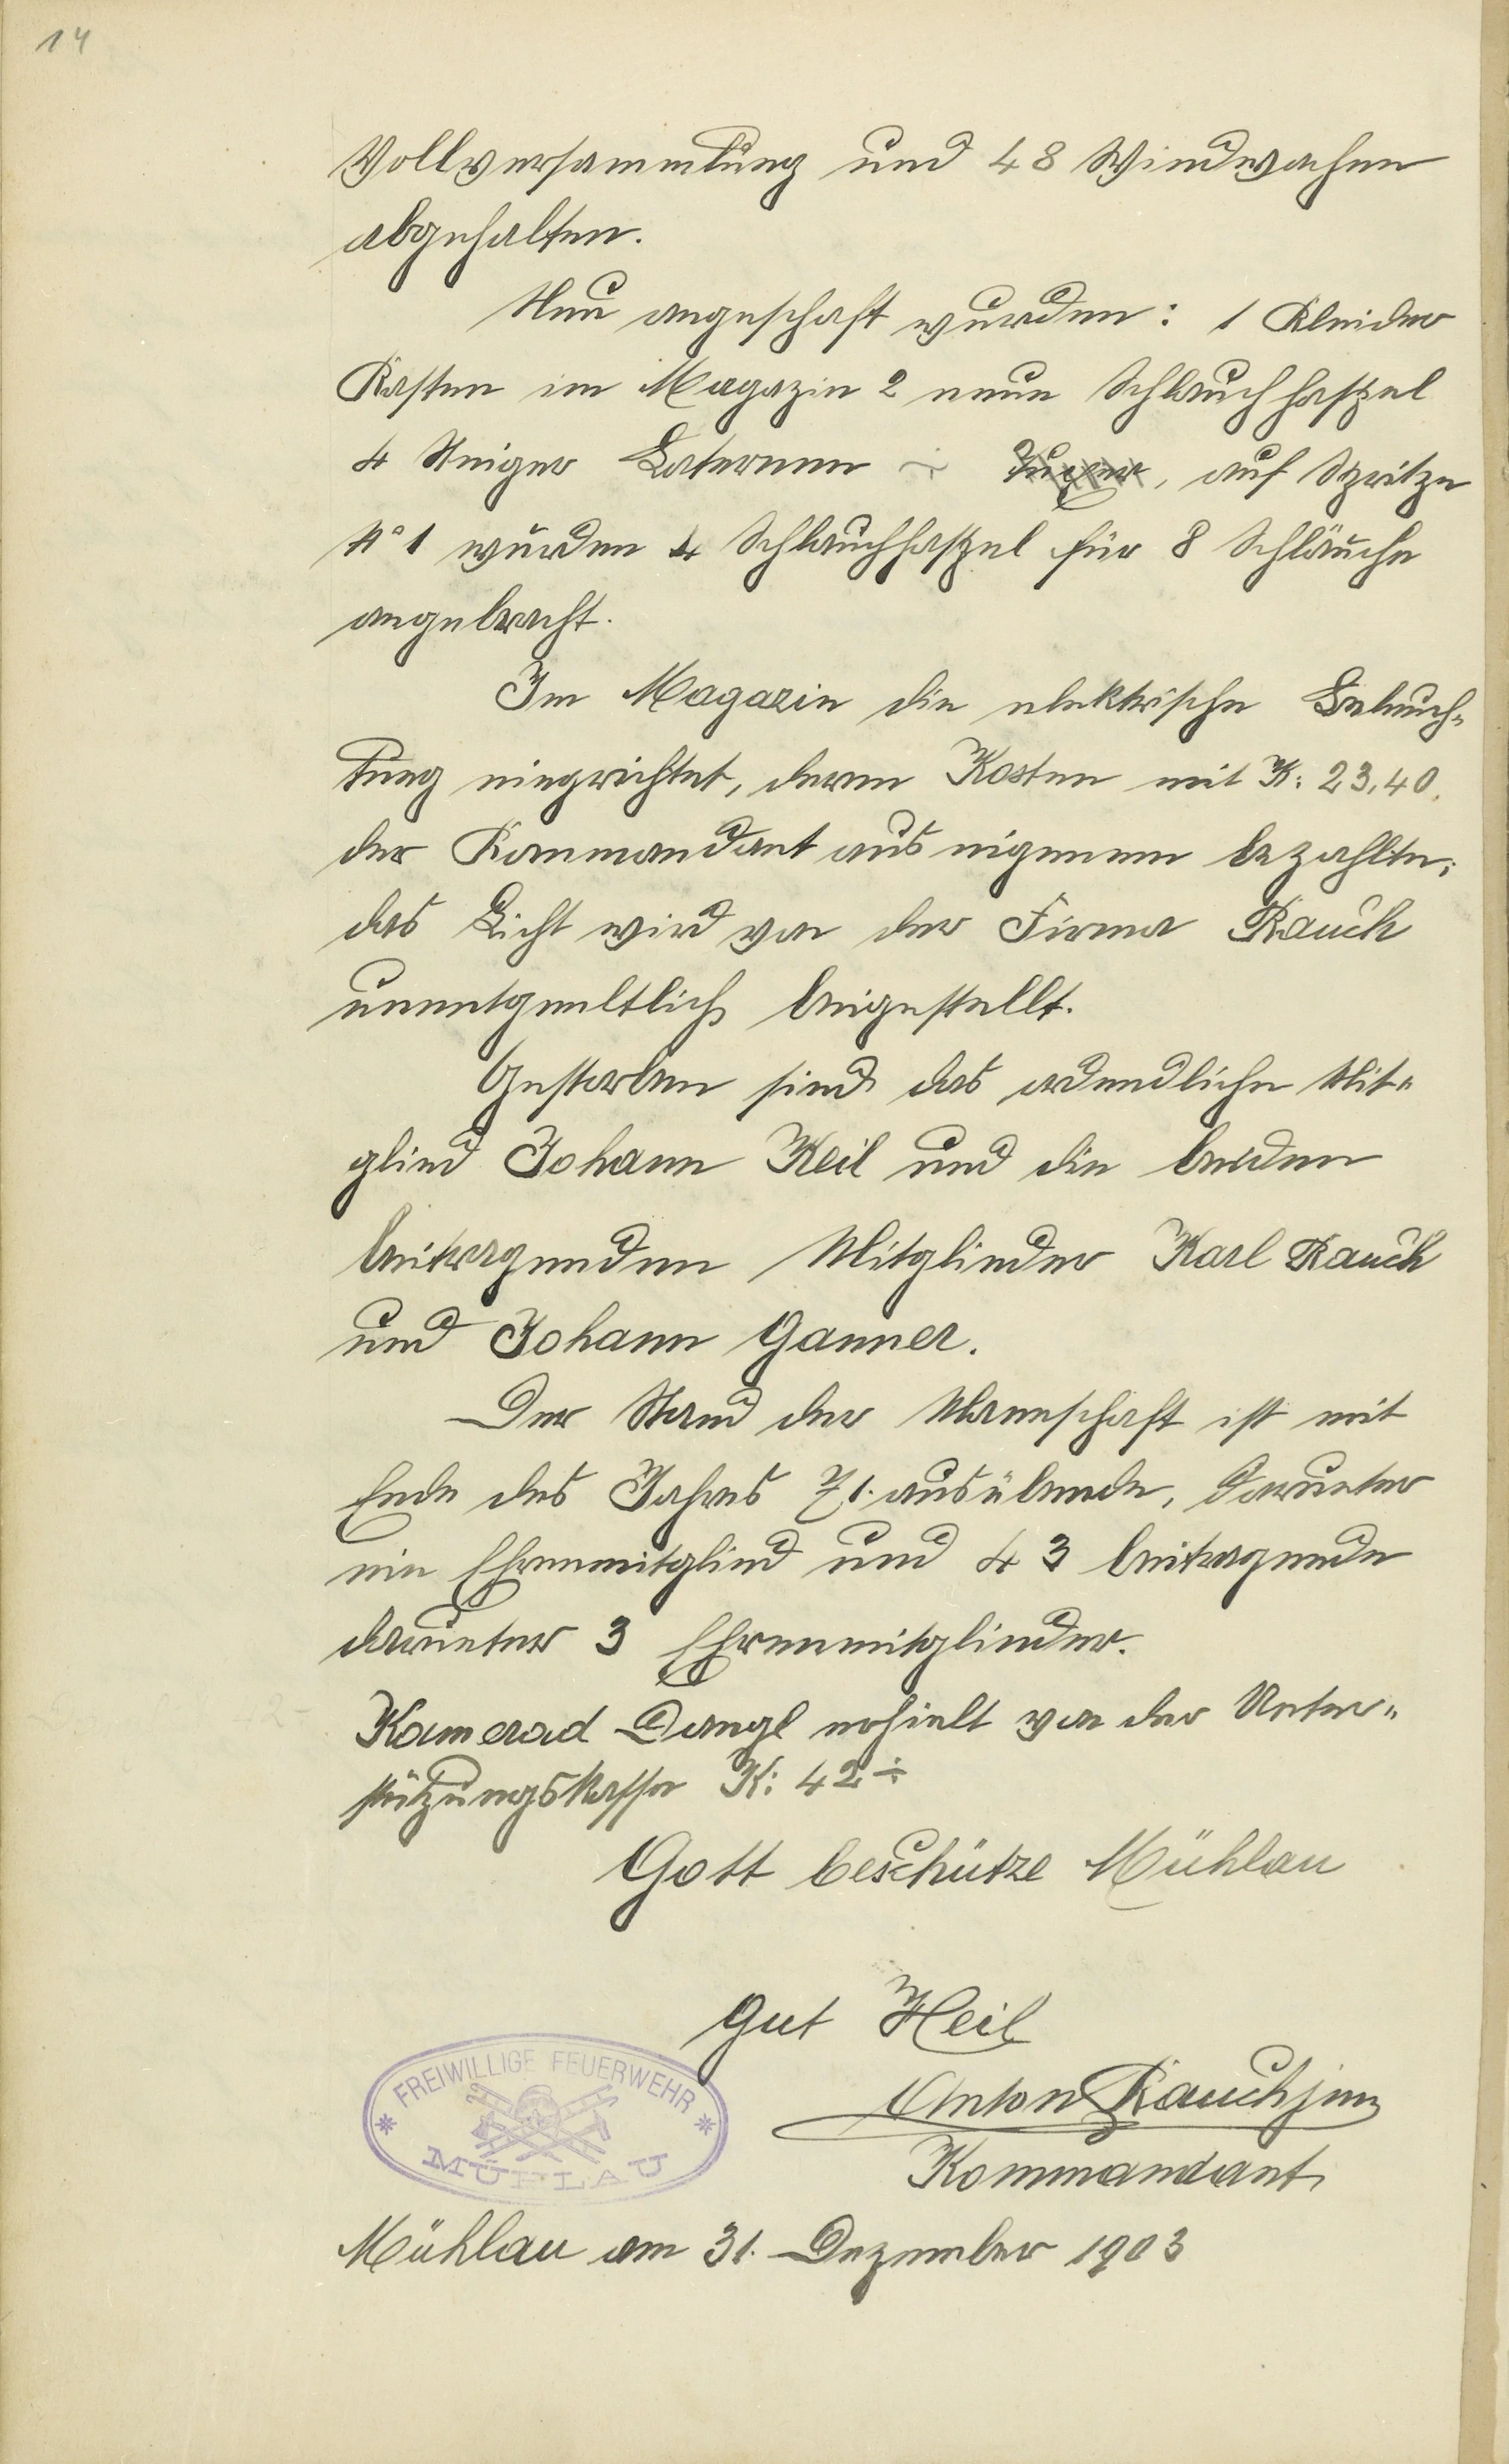 14
Vollversammlung und 48 Windwachen
abgehalten.
Neu angeschaft wurden: 1 Kleider
Kasten im Magazin 2 neue Schlauchhaspel
4 Steiger Laternen, auf Spritze
No 1 wurden 4 Schlauchhaspel für 8 Schläuche
angebracht.
Im Magazin die elektrische Beleuch-
tung eingerichtet, deren Kosten mit K: 23,40.
der Kommandant aus eigenem bezahlte;
das Licht wird von der Firma Rauch
unentgeltlich beigestellt.
Gestorben sind das ordendliche Mit-
glied Johann Keil und die beiden
beitragenden Mitglieder Karl Rauch
und Johann Ganner.
Der Stand der Mannschaft ist mit
Ende des Jahres 71. ausübende, darunter
ein Ehrenmitglied und 43 beitragende
darunter 3 Ehrenmitglieder.
Kamerad Dangl erhielt von der Unter-
stützungskassa K: 42 ÷
Gott beschütze Mühlau
Gut Heil
FREIWILLIGE FEUERWEHR
MÜHLAU
Anton Rauch jun
Kommandant,
Mühlau am 31. Dezember 1903